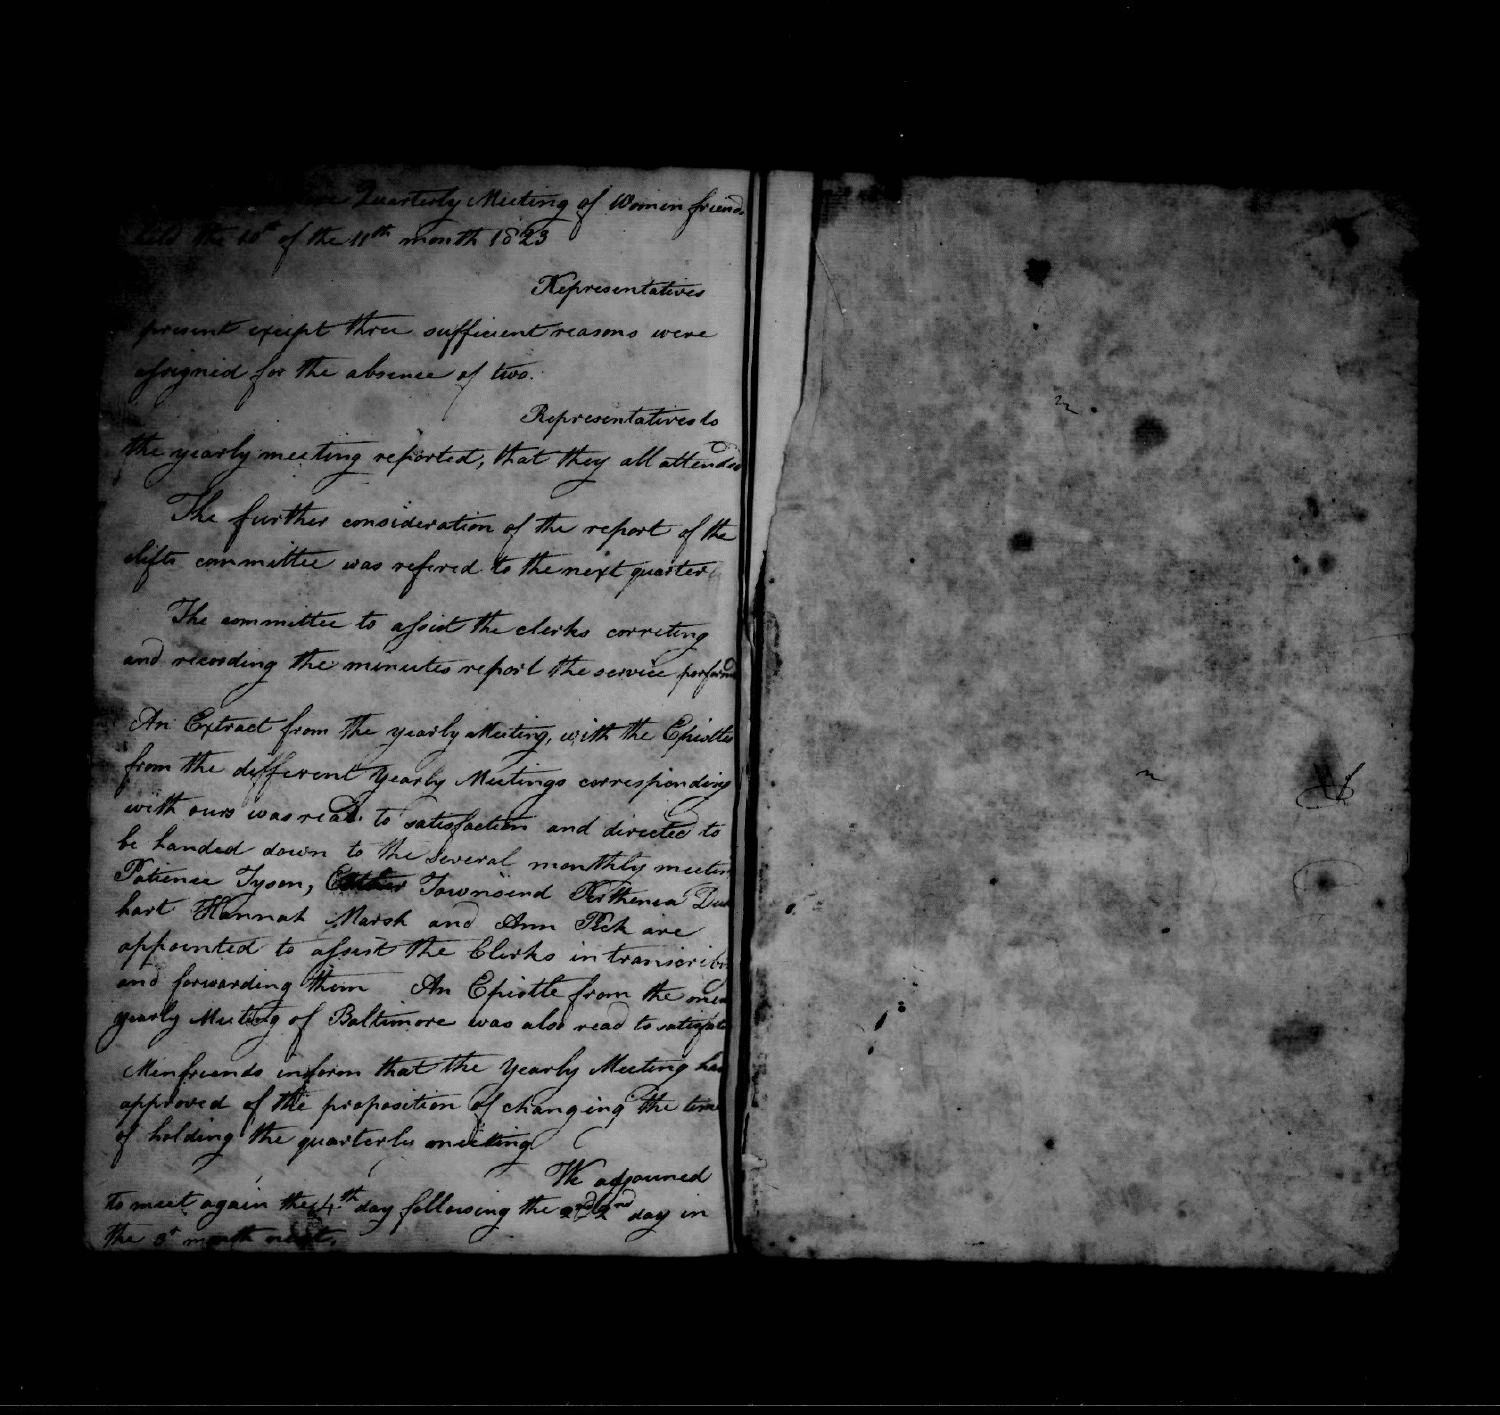 Quarterly Meeting of Women friends
held the 10th of the 11th month 1823
Representatives
present except three sufficient reasons were
assigned for the absence of two.
Representatives to
the yearly meeting reported, that they all attended
The further consideration of the report of the
clifts committee was refered to the next quarter
The committee to assist the clerks correting
and recording the minutes report the service performd
An Extract from the yearly Meeting, with the Epistles
from the different Yearly Meetings corresponding
with ours was read to satisfaction and directed to
be handed down to the several monthly meetin
Patience Tyson, Townsend
hart Hannah Marsh and Ann are
appointed to assist the Clerks in transcribi
and forwarding them An Epistle from the
yearly Meeting of Baltimore was also read to satisfat
Menfriends inform that the Yearly Meeting has
approved of the proposition of changing the time
of holding the quarterly meeting
We adjourned
to meet again the 4th day following the 2nd 2nd day in
the month next.